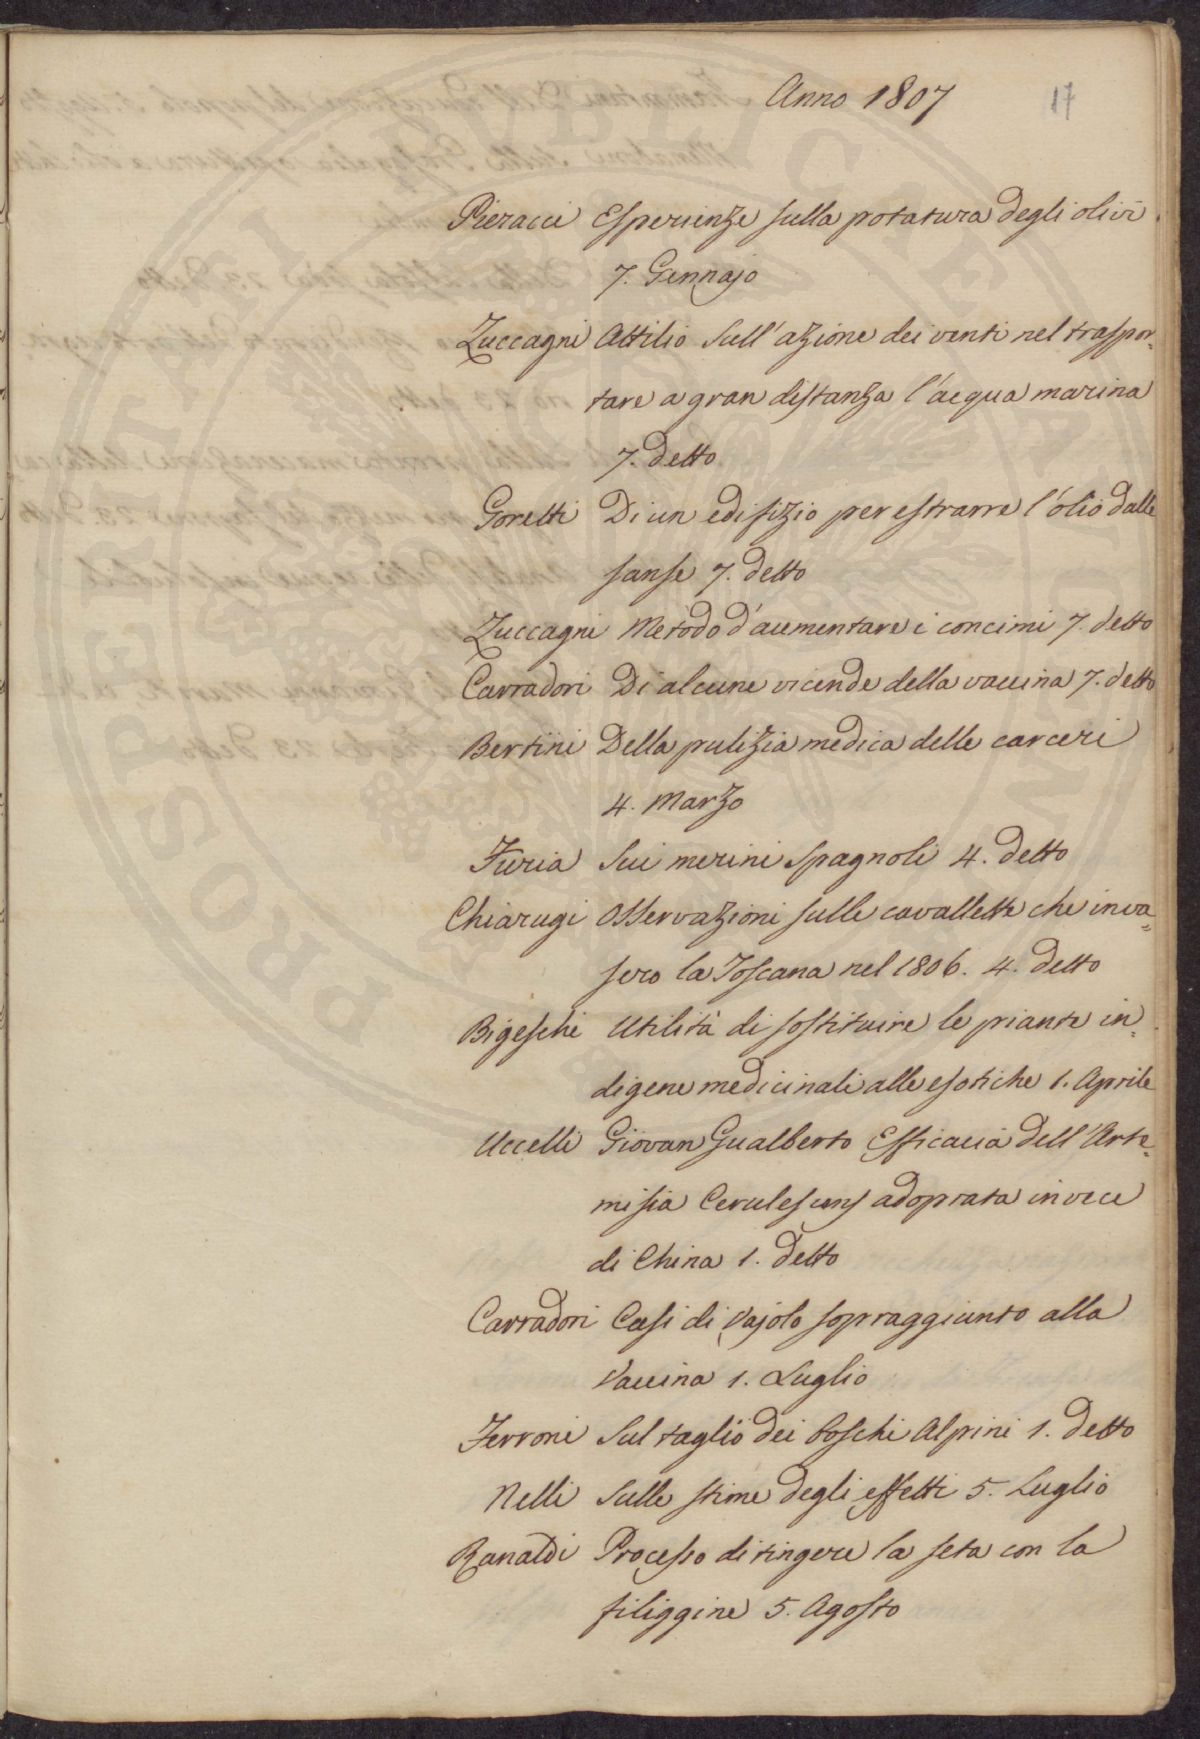 Anno 1807
17
Pieracci Esperienze sulla potatura degli olivi
7. Gennajo
Zuccagni Attilio Sull'azione dei venti nel traspor=
tare a gran distanza l'acqua marina
7. detto
Goretti Di un edifizio per estrarre l'olio dalle
sanse 7. detto
Zuccagni Metodo d'aumentare i concimi 7. detto
Carradori Di alcune vicende della vaccina 7. detto
Bertini Della pulizia medica delle carceri
4. Marzo
Furia Sui merini spagnoli 4. detto
Chiarugi Osservazioni sulle cavallette che inva=
sero la Toscana nel 1806. 4. detto
Bigeschi Utilità di sostituire le piante in=
digene medicinali alle esotiche 1. Aprile
Uccelli Giovan Gualberto Efficacia dell'Arte=
misia Cerulescens adoprata invece
di China 1. detto
Carradori Casi di Vajolo sopraggiunto alla
Vaccina 1. Luglio
Ferroni Sul taglio dei boschi Alpini 1. detto
Nelli Sulle stime degli effetti 5. Luglio
Ranaldi Processo di tingere la seta con la
filiggine 5. Agosto
PROSPERITATI PVBLICAE